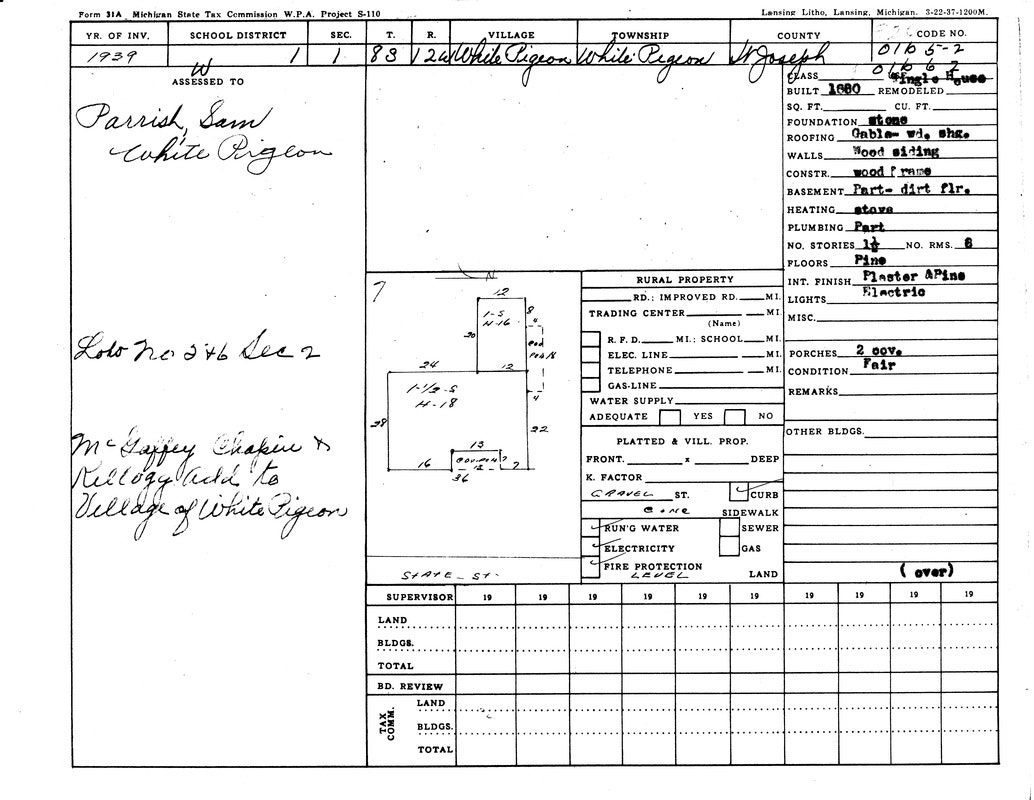 Form 31A Michigan State Tax Commission W.P.A. Project S-110
Lansing Litho, Lansing, Michigan. 3-22-37-1200M.
YR. OF INV. SCHOOL DISTRICT SEC. T. R. VILLAGE TOWNSHIP COUNTY CODE NO.
1939 1 1 8S 12W White Pigeon White Pigeon St Joseph 01b 5-2
W
01b 6 2
ASSESSED TO
Parrish, Sam
White Pigeon
Lots No 5 & 6 Sec 2
McGaffey Chapin &
Kellogg Add to
Village of White Pigeon
7
N
12
1-S
H-16
8
4
20
COV
PORCH
24
12
4
1-1/2-S
H-18
28
22
13
COV. PORCH
7
16
13
7
36
STATE - ST.
RURAL PROPERTY
RD.: IMPROVED RD. MI.
TRADING CENTER MI.
(Name)
R. F. D. MI.: SCHOOL MI.
ELEC. LINE MI.
TELEPHONE MI.
GAS-LINE
WATER SUPPLY
ADEQUATE YES NO
PLATTED & VILL. PROP.
FRONT. x DEEP
K. FACTOR
GRAVEL ST. CURB
CONC SIDEWALK
RUN'G WATER SEWER
ELECTRICITY GAS
FIRE PROTECTION
LEVEL LAND
CLASS Single House
BUILT 1880 REMODELED
SQ. FT. CU. FT.
FOUNDATION stone
ROOFING Gable- wd. shg.
WALLS Wood siding
CONSTR. wood frame
BASEMENT Part- dirt flr.
HEATING stove
PLUMBING Part
NO. STORIES 1½ NO. RMS. 6
FLOORS Pine
INT. FINISH Plaster &Pine
LIGHTS Electric
MISC.
PORCHES 2 cov.
CONDITION Fair
REMARKS
OTHER BLDGS.
(over)
SUPERVISOR 19 19 19 19 19 19 19 19 19 19
LAND
BLDGS.
TOTAL
BD. REVIEW
TAX COMM.
LAND
BLDGS.
TOTAL